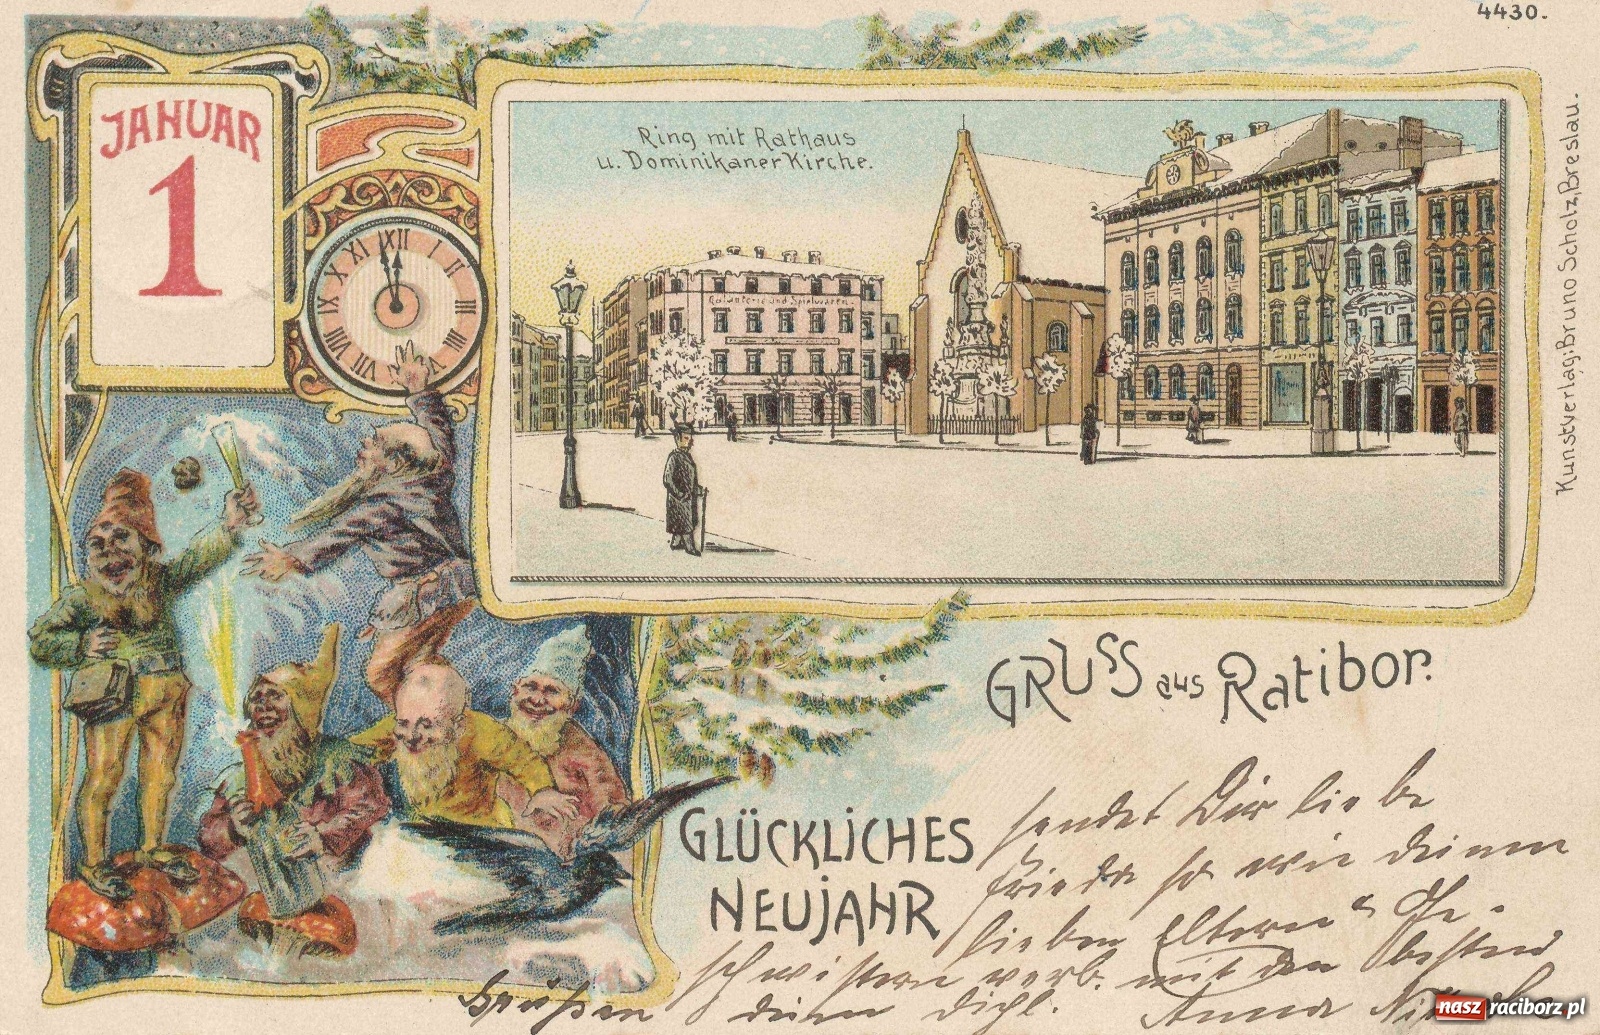 4430.
JANUAR
1
XII
I
II
III
IX
X
XI
VIII
VII
Ring mit Rathaus
u. Dominikaner Kirche.
Galanterie und Spielwaren.
Kunstverlag: Bruno Scholz, Breslau.
GRUSS aus Ratibor.
GLÜCKLICHES
NEUJAHR
sendet Dir liebe
Frieda so wie deinen
lieben Eltern u. Ge-
schwistern verb. mit den besten
Grüßen deine dichl. Anna
nasz raciborz.pl